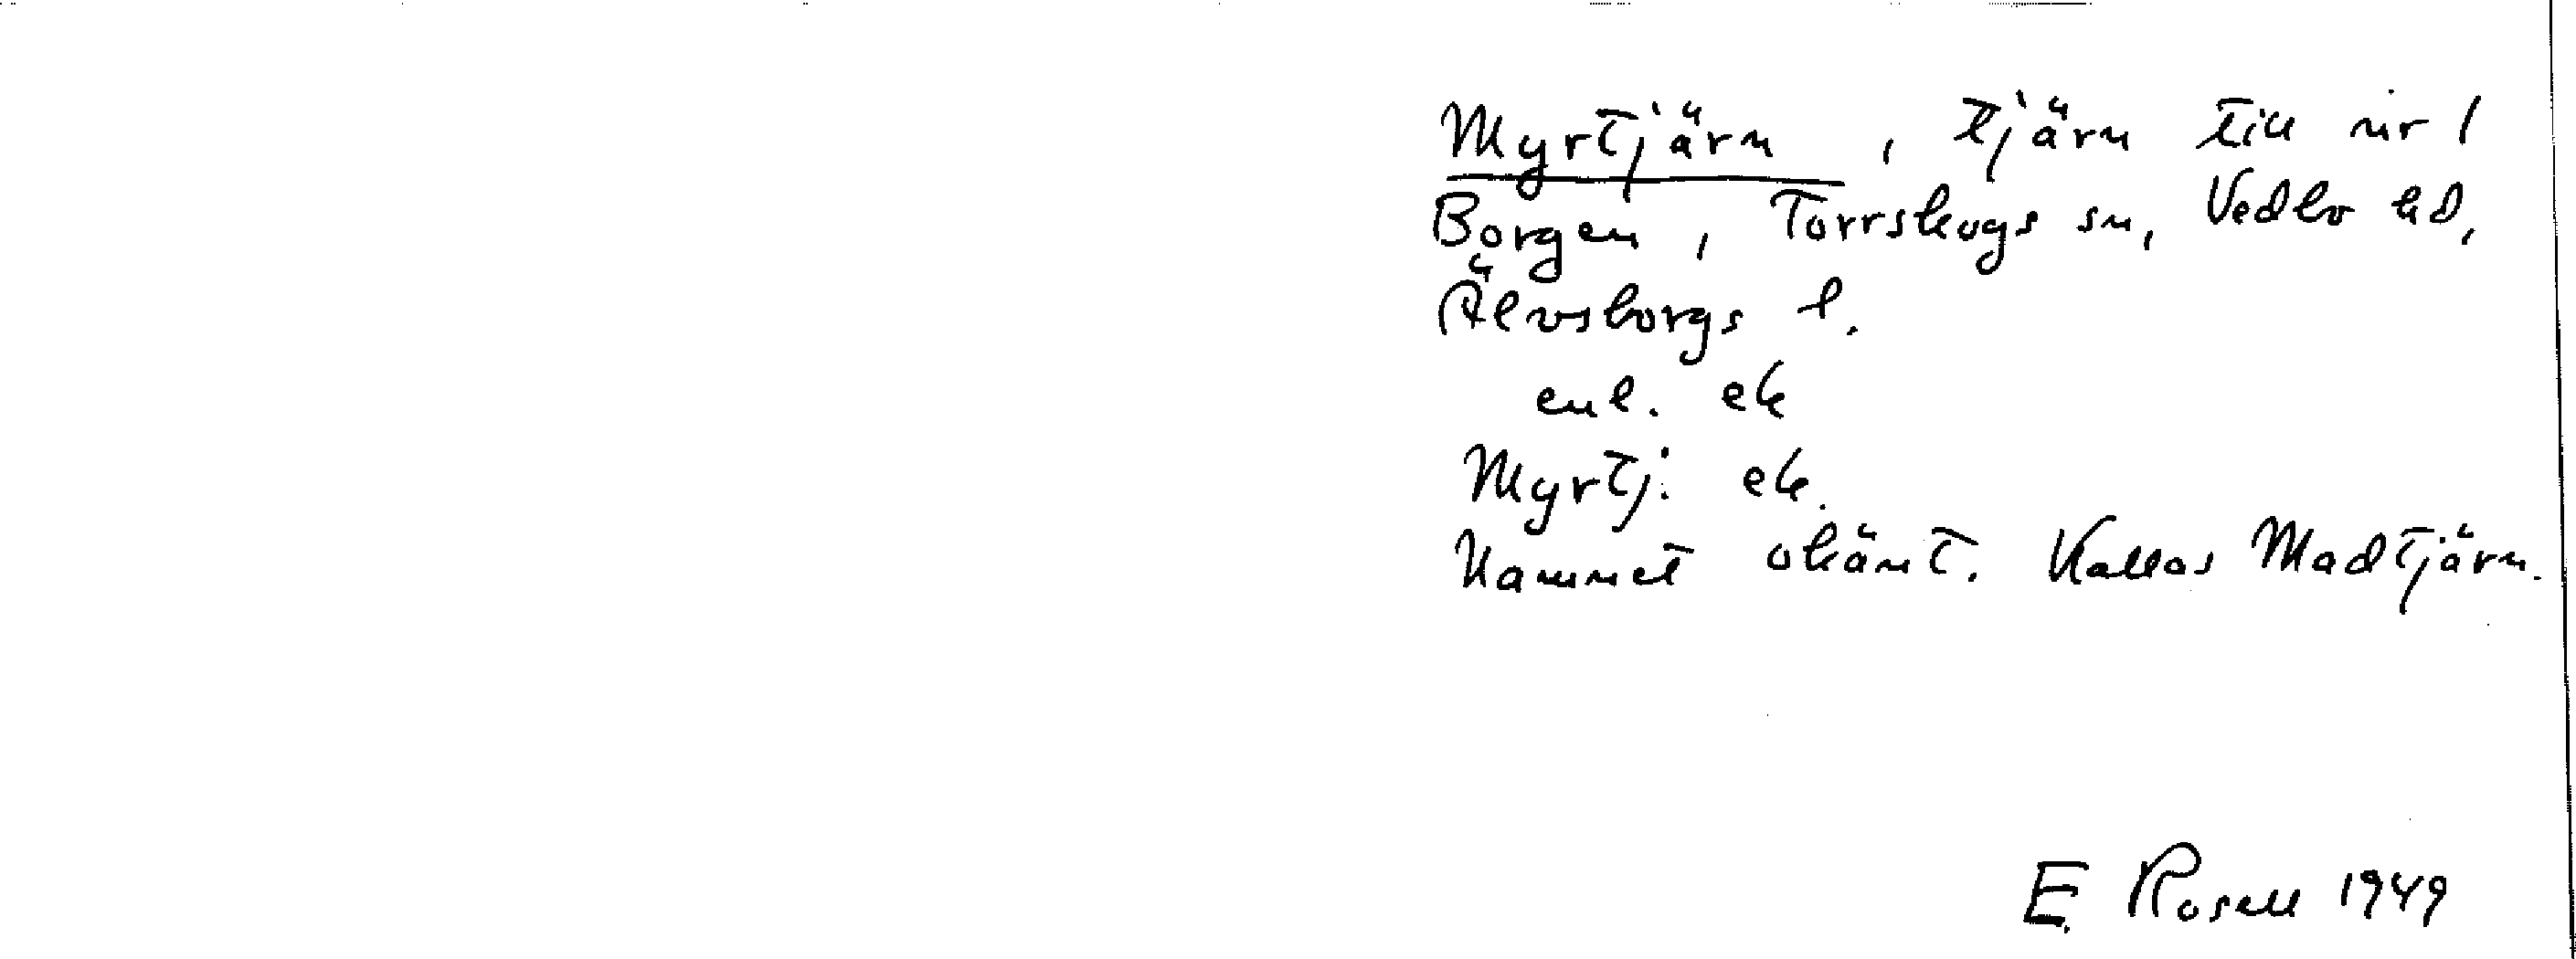 Myrtjärn, tjärn till nr 1
Borgen, Torrskogs sn, Vedbo hd,
Älvsborgs l.
enl. ek
Myrtj: ek.
Namnet okänt. Kallas Madtjärn.
E Rosell 1949